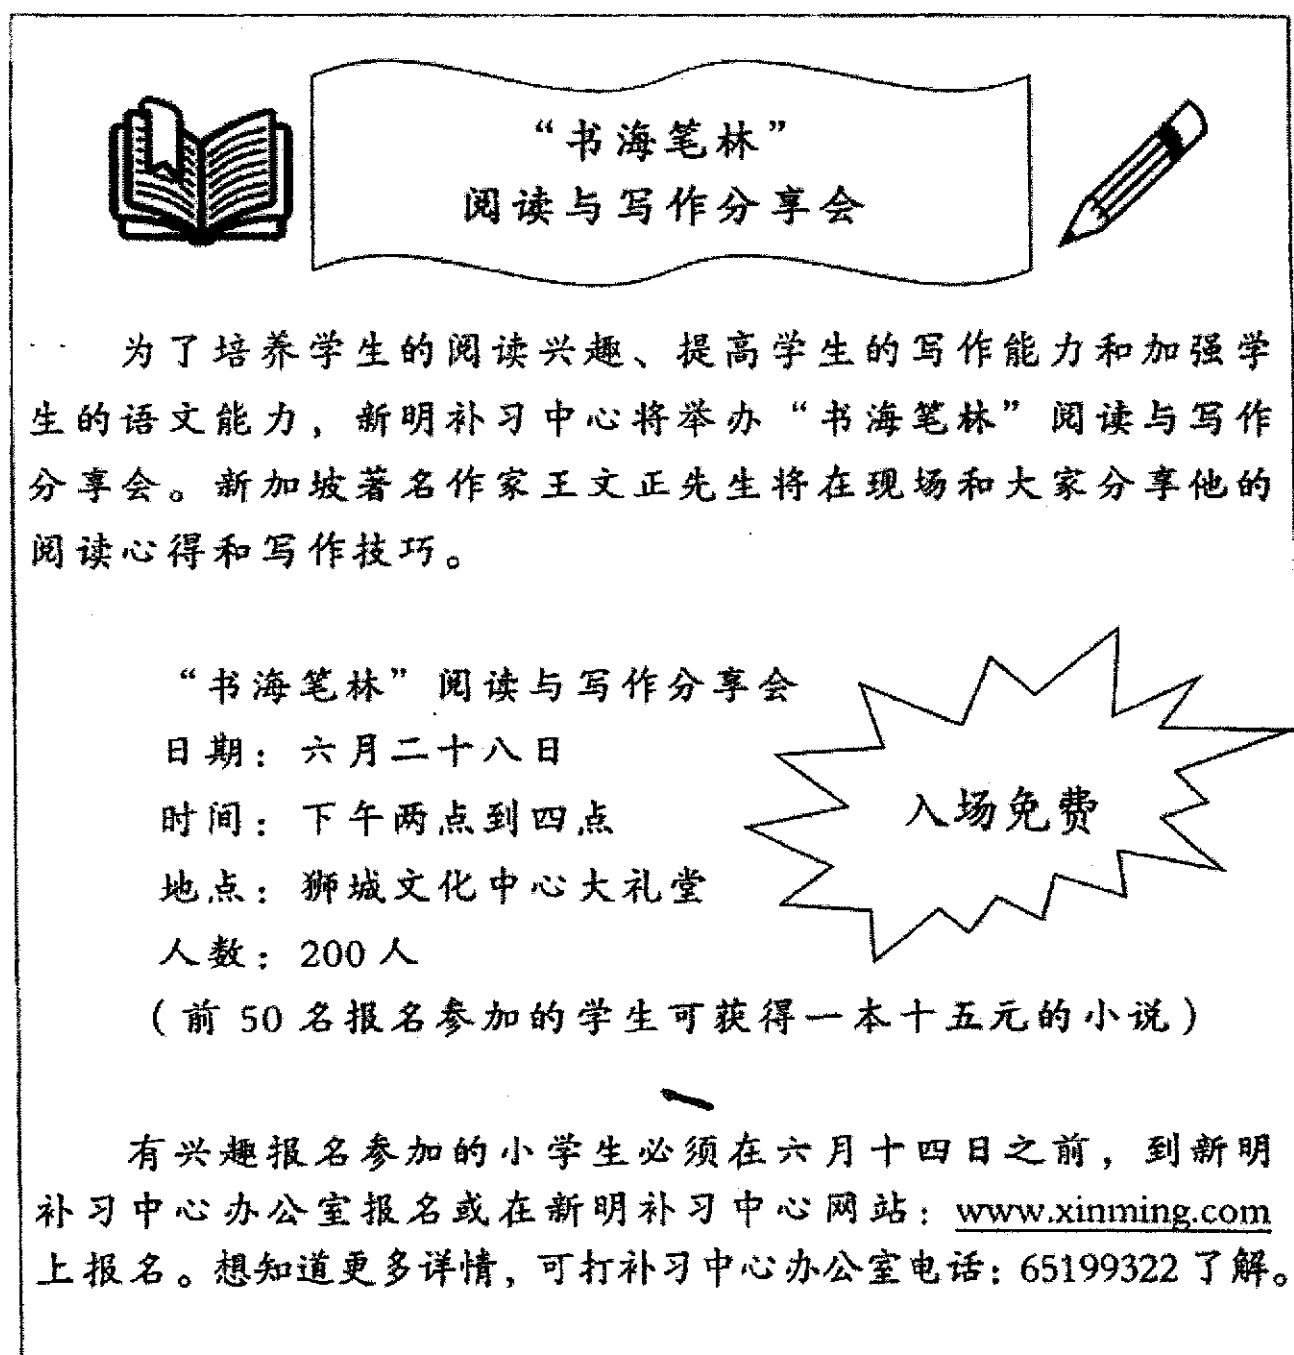 “书海笔林”
阅读与写作分享会
为了培养学生的阅读兴趣、提高学生的写作能力和加强学
生的语文能力，新明补习中心将举办“书海笔林”阅读与写作
分享会。新加坡著名作家王文正先生将在现场和大家分享他的
阅读心得和写作技巧。
“书海笔林”阅读与写作分享会
日期：六月二十八日
时间：下午两点到四点
地点：狮城文化中心大礼堂
人数：200 人
（前 50 名报名参加的学生可获得一本十五元的小说）
入场免费
有兴趣报名参加的小学生必须在六月十四日之前，到新明
补习中心办公室报名或在新明补习中心网站：www.xinming.com
上报名。想知道更多详情，可打补习中心办公室电话：65199322 了解。